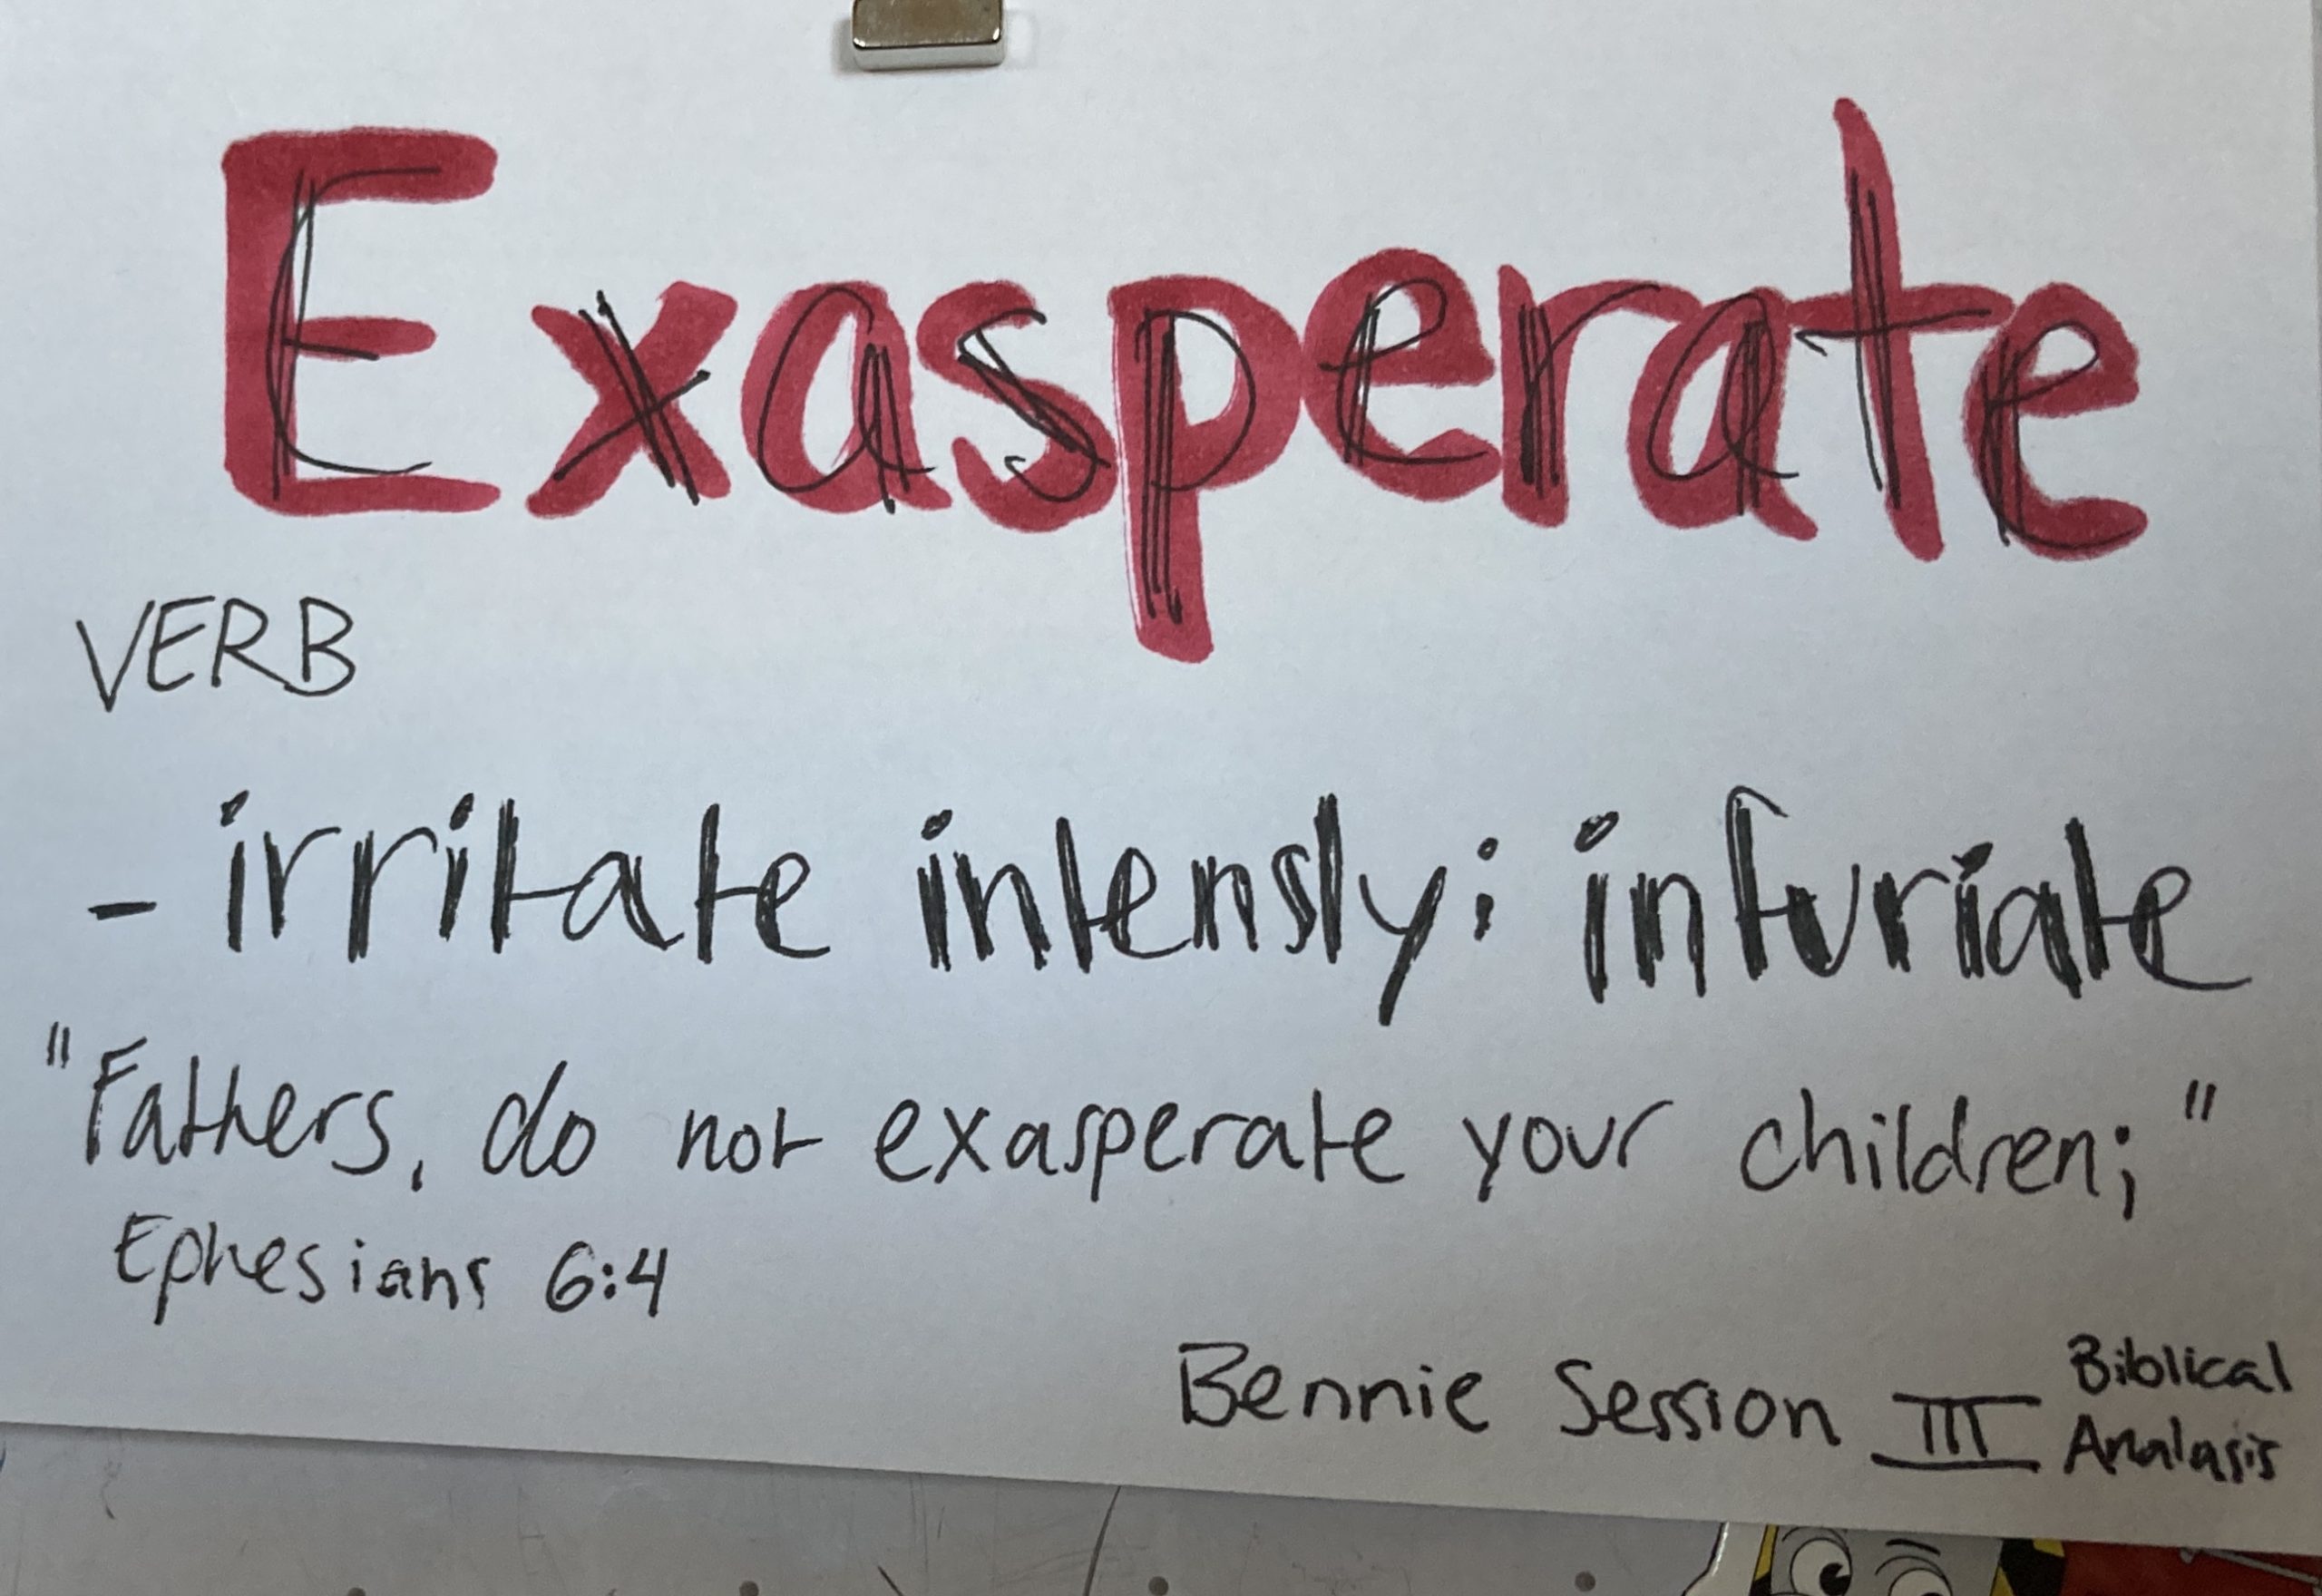 Exasperate
VERB
- irritate intensly; infuriate
"Fathers, do not exasperate your children;"
Ephesians 6:4
Bennie Session III Biblical
Analasis